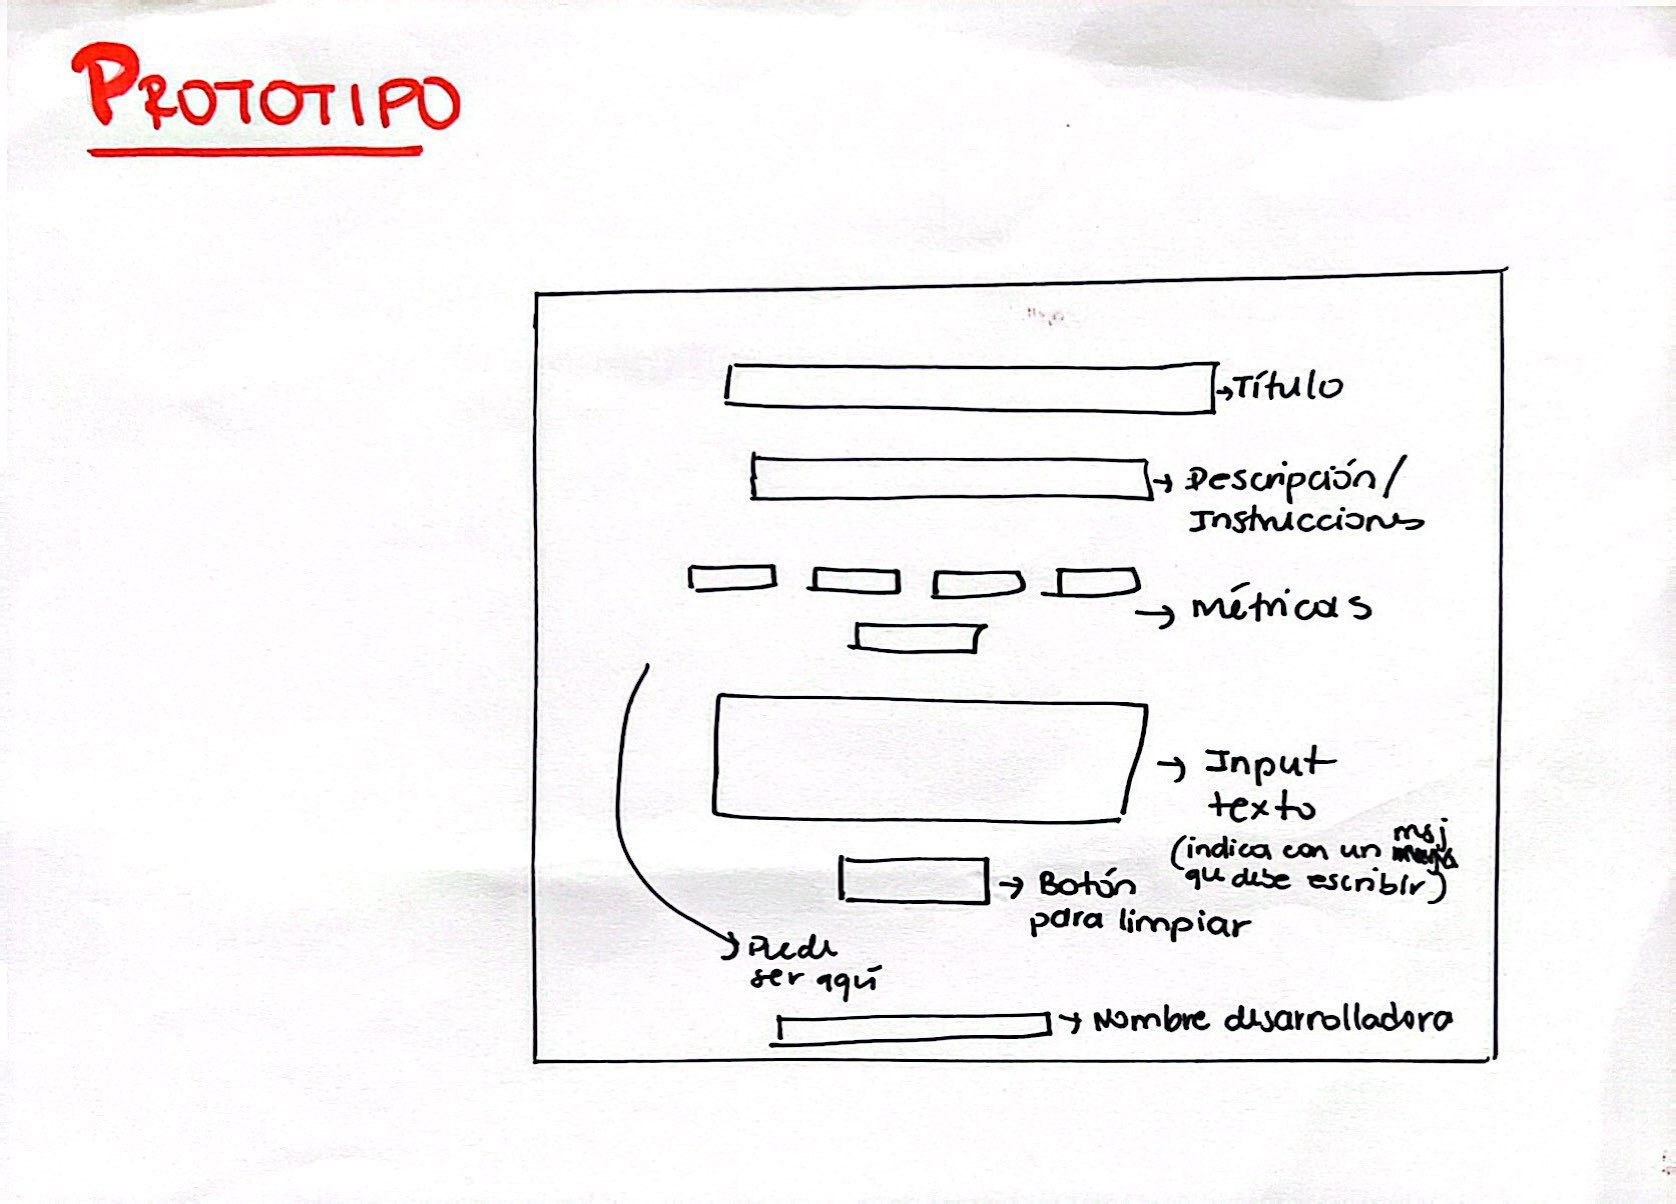 PROTOTIPO
Título
Descripción/
Instrucciones
Métricas
Input
texto
(indica con un msj
que debe escribir)
Botón
para limpiar
Puede
ser aquí
Nombre desarrolladora